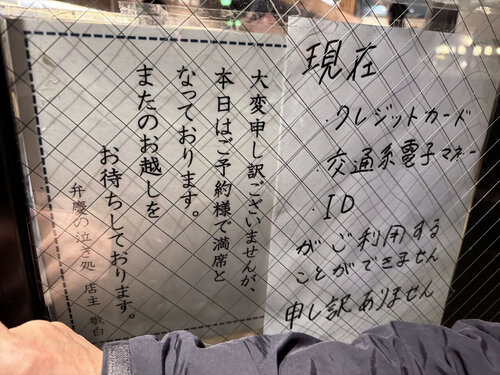 大変申し訳ございませんが、
本日はご予約様で満席と
なっております。
またのお越しを
お待ちしております。
弁慶の泣き処 店主 敬白
現在
・クレジットカード
・交通系電子マネー
・ID
がご利用する
ことができません
申し訳ありません